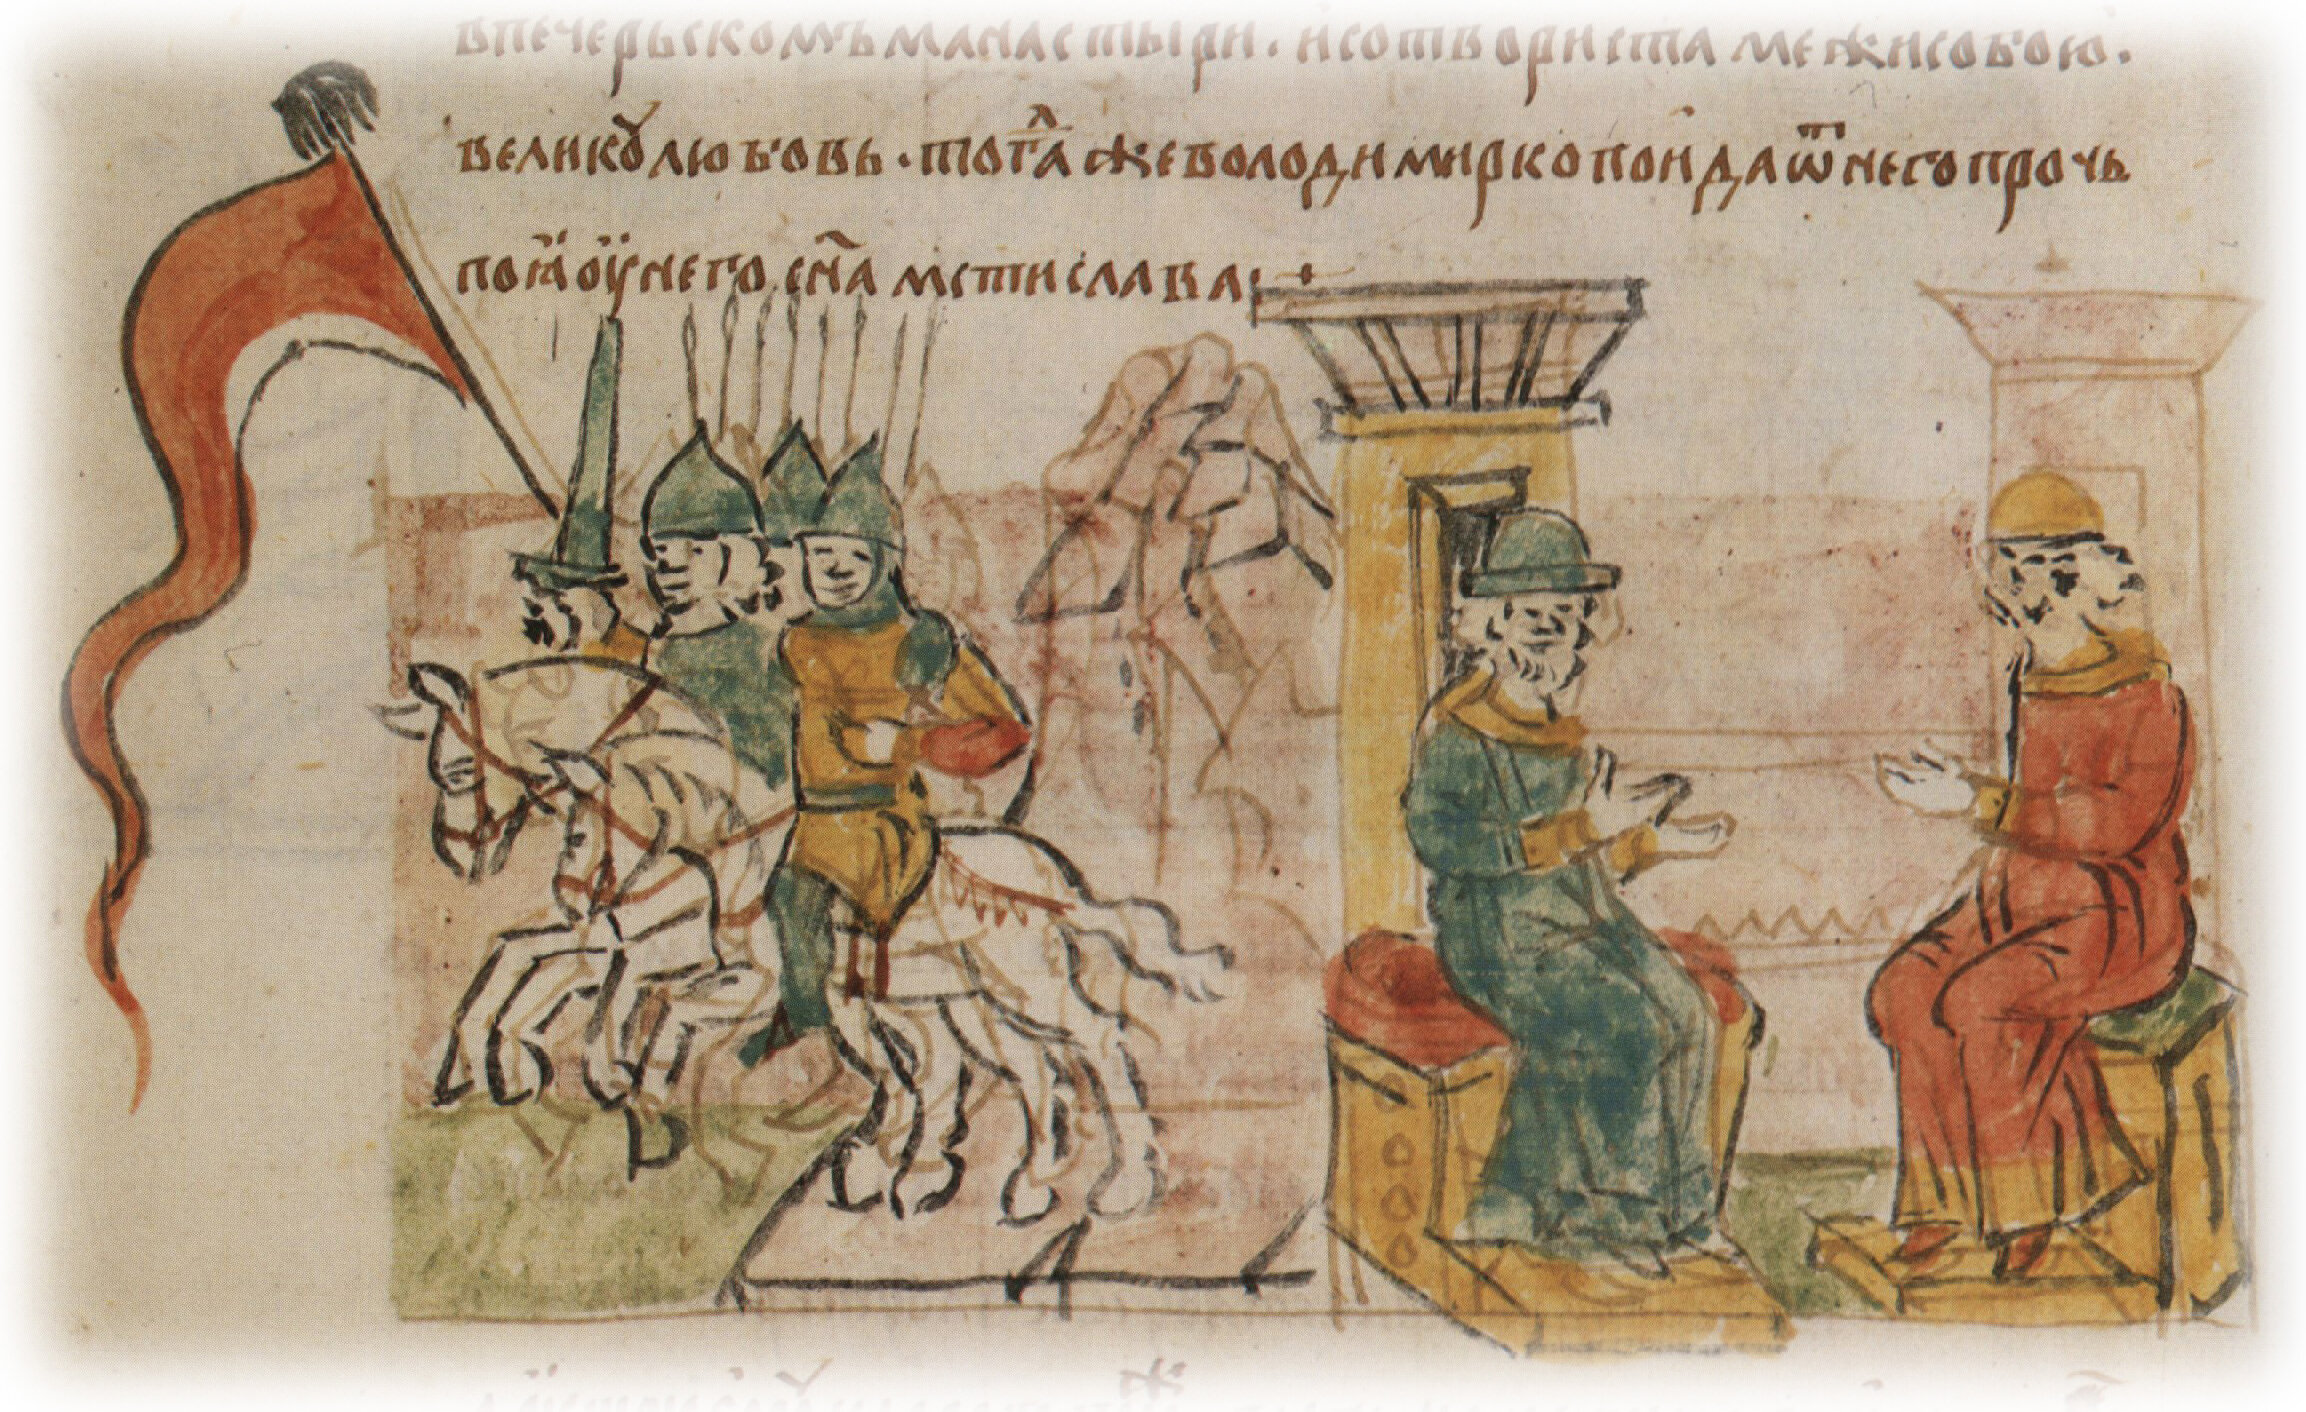 впечерьскомъманастыри. исотвористамежисобою.
великꙋлюбовь. тогⷣажеволодимиркопоидаѿнегопрочь
поꙗоунегосн҃амстислава